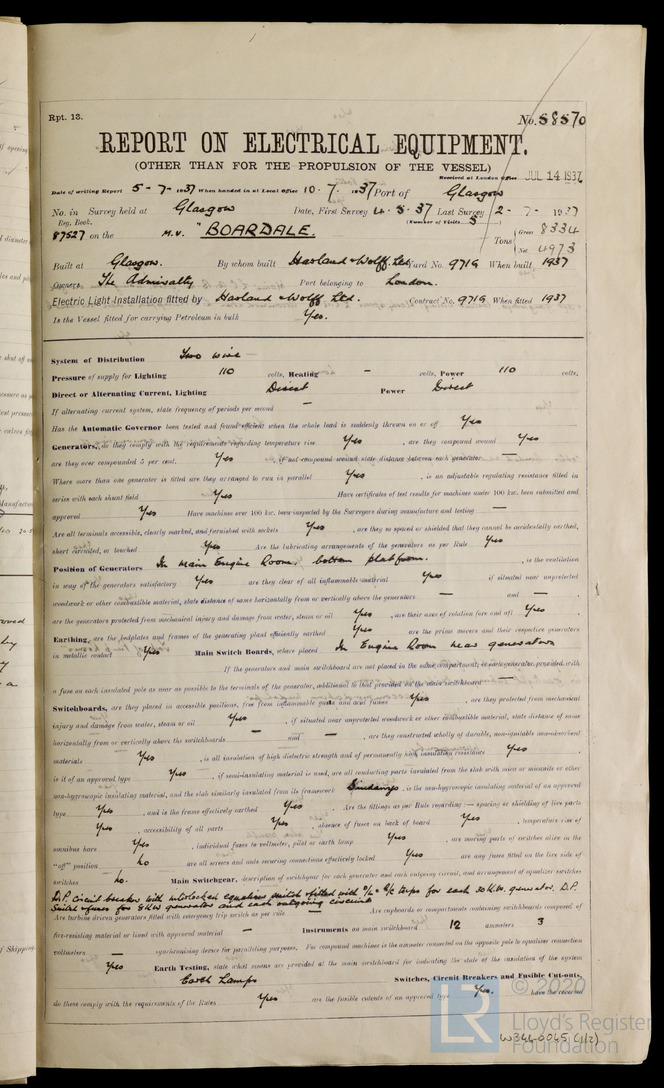 Rpt. 13.
No. 58570
REPORT ON ELECTRICAL EQUIPMENT.
(OTHER THAN FOR THE PROPULSION OF THE VESSEL)
Received at London Office JUL 14 1937
Date of writing Report 5-7-1937 When handed in at Local Office 10.7.1937 Port of Glasgow
No. in Survey held at Glasgow Date, First Survey 4.3.37 Last Survey 2-7-1937
Reg. Book. (Number of Visits 5
87527 on the M.V. "BOARDALE. Tons { Gross 8334
Net 4973
Built at Glasgow. By whom built Harland & Wolff. Ltd Yard No. 971G When built 1937
Owners The Admiralty Port belonging to London.
Electric Light Installation fitted by Harland & Wolff Ltd. Contract No. 971G When fitted 1937
Is the Vessel fitted for carrying Petroleum in bulk Yes.
System of Distribution Two wire
Pressure of supply for Lighting 110 volts, Heating - volts, Power 110 volts,
Direct or Alternating Current, Lighting Direct Power Direct
If alternating current system, state frequency of periods per second —
Has the Automatic Governor been tested and found efficient when the whole load is suddenly thrown on or off Yes
Generators, do they comply with the requirements regarding temperature rise Yes, are they compound wound Yes
are they over compounded 5 per cent. Yes, if not compound wound state distance between each generator —
Where more than one generator is fitted are they arranged to run in parallel Yes, is an adjustable regulating resistance fitted in
series with each shunt field Yes Have certificates of test results for machines under 100 kw. been submitted and
approved Yes Have machines over 100 kw. been inspected by the Surveyors during manufacture and testing —
Are all terminals accessible, clearly marked, and furnished with sockets Yes, are they so spaced or shielded that they cannot be accidentally earthed,
short circuited, or touched Yes Are the lubricating arrangements of the generators as per Rule Yes
Position of Generators In Main Engine Room, bottom platform., is the ventilation
in way of the generators satisfactory Yes are they clear of all inflammable material Yes, if situated near unprotected
woodwork or other combustible material, state distance of same horizontally from or vertically above the generators — and —,
are the generators protected from mechanical injury and damage from water, steam or oil Yes, are their axes of rotation fore and aft Yes.
Earthing, are the bedplates and frames of the generating plant efficiently earthed Yes are the prime movers and their respective generators
in metallic contact Yes Main Switch Boards, where placed In Engine Room near generators
If the generators and main switchboard are not placed in the same compartment, is each generator provided with
a fuse on each insulated pole as near as possible to the terminals of the generator, additional to that provided on the main switchboard —
Switchboards, are they placed in accessible positions, free from inflammable gases and acid fumes Yes, are they protected from mechanical
injury and damage from water, steam or oil Yes, if situated near unprotected woodwork or other combustible material, state distance of same
horizontally from or vertically above the switchboards — and —, are they constructed wholly of durable, non-ignitable non-absorbent
materials Yes, is all insulation of high dielectric strength and of permanently high insulating resistance Yes
is it of an approved type Yes, if semi-insulating material is used, are all conducting parts insulated from the slab with mica or micanite or other
non-hygroscopic insulating material, and the slab similarly insulated from its framework Sindanyo., is the non-hygroscopic insulating material of an approved
type Yes, and is the frame effectively earthed Yes. Are the fittings as per Rule regarding:— spacing or shielding of live parts
Yes, accessibility of all parts Yes, absence of fuses on back of board Yes, temperature rise of
omnibus bars Yes, individual fuses to voltmeter, pilot or earth lamp Yes, are moving parts of switches alive in the
"off" position No are all screws and nuts securing connections effectively locked Yes are any fuses fitted on the live side of
switches No. Main Switchgear, description of switchgear for each generator and each outgoing circuit, and arrangement of equaliser switches
D.P. circuit breaker with interlocked equaliser switch & fitted with O/L & R/C trips for each 50 K.W. generator. D.P.
switch & fuses for generator and each outgoing circuit
Are turbine driven generators fitted with emergency trip switch as per rule — Are cupboards or compartments containing switchboards composed of
fire-resisting material or lined with approved material — Instruments on main switchboard 12 ammeters 3
voltmeters — synchronising device for paralleling purposes. For compound machines is the ammeter connected on the opposite pole to equaliser connection
Yes Earth Testing, state what means are provided at the main switchboard for indicating the state of the insulation of the system
Earth Lamps Switches, Circuit Breakers and Fusible Cut-outs,
do these comply with the requirements of the Rules Yes are the fusible cutouts of an approved type Yes. have the reversed
© 2020
LR Lloyd's Register
Foundation
W344-0045 (1/2)